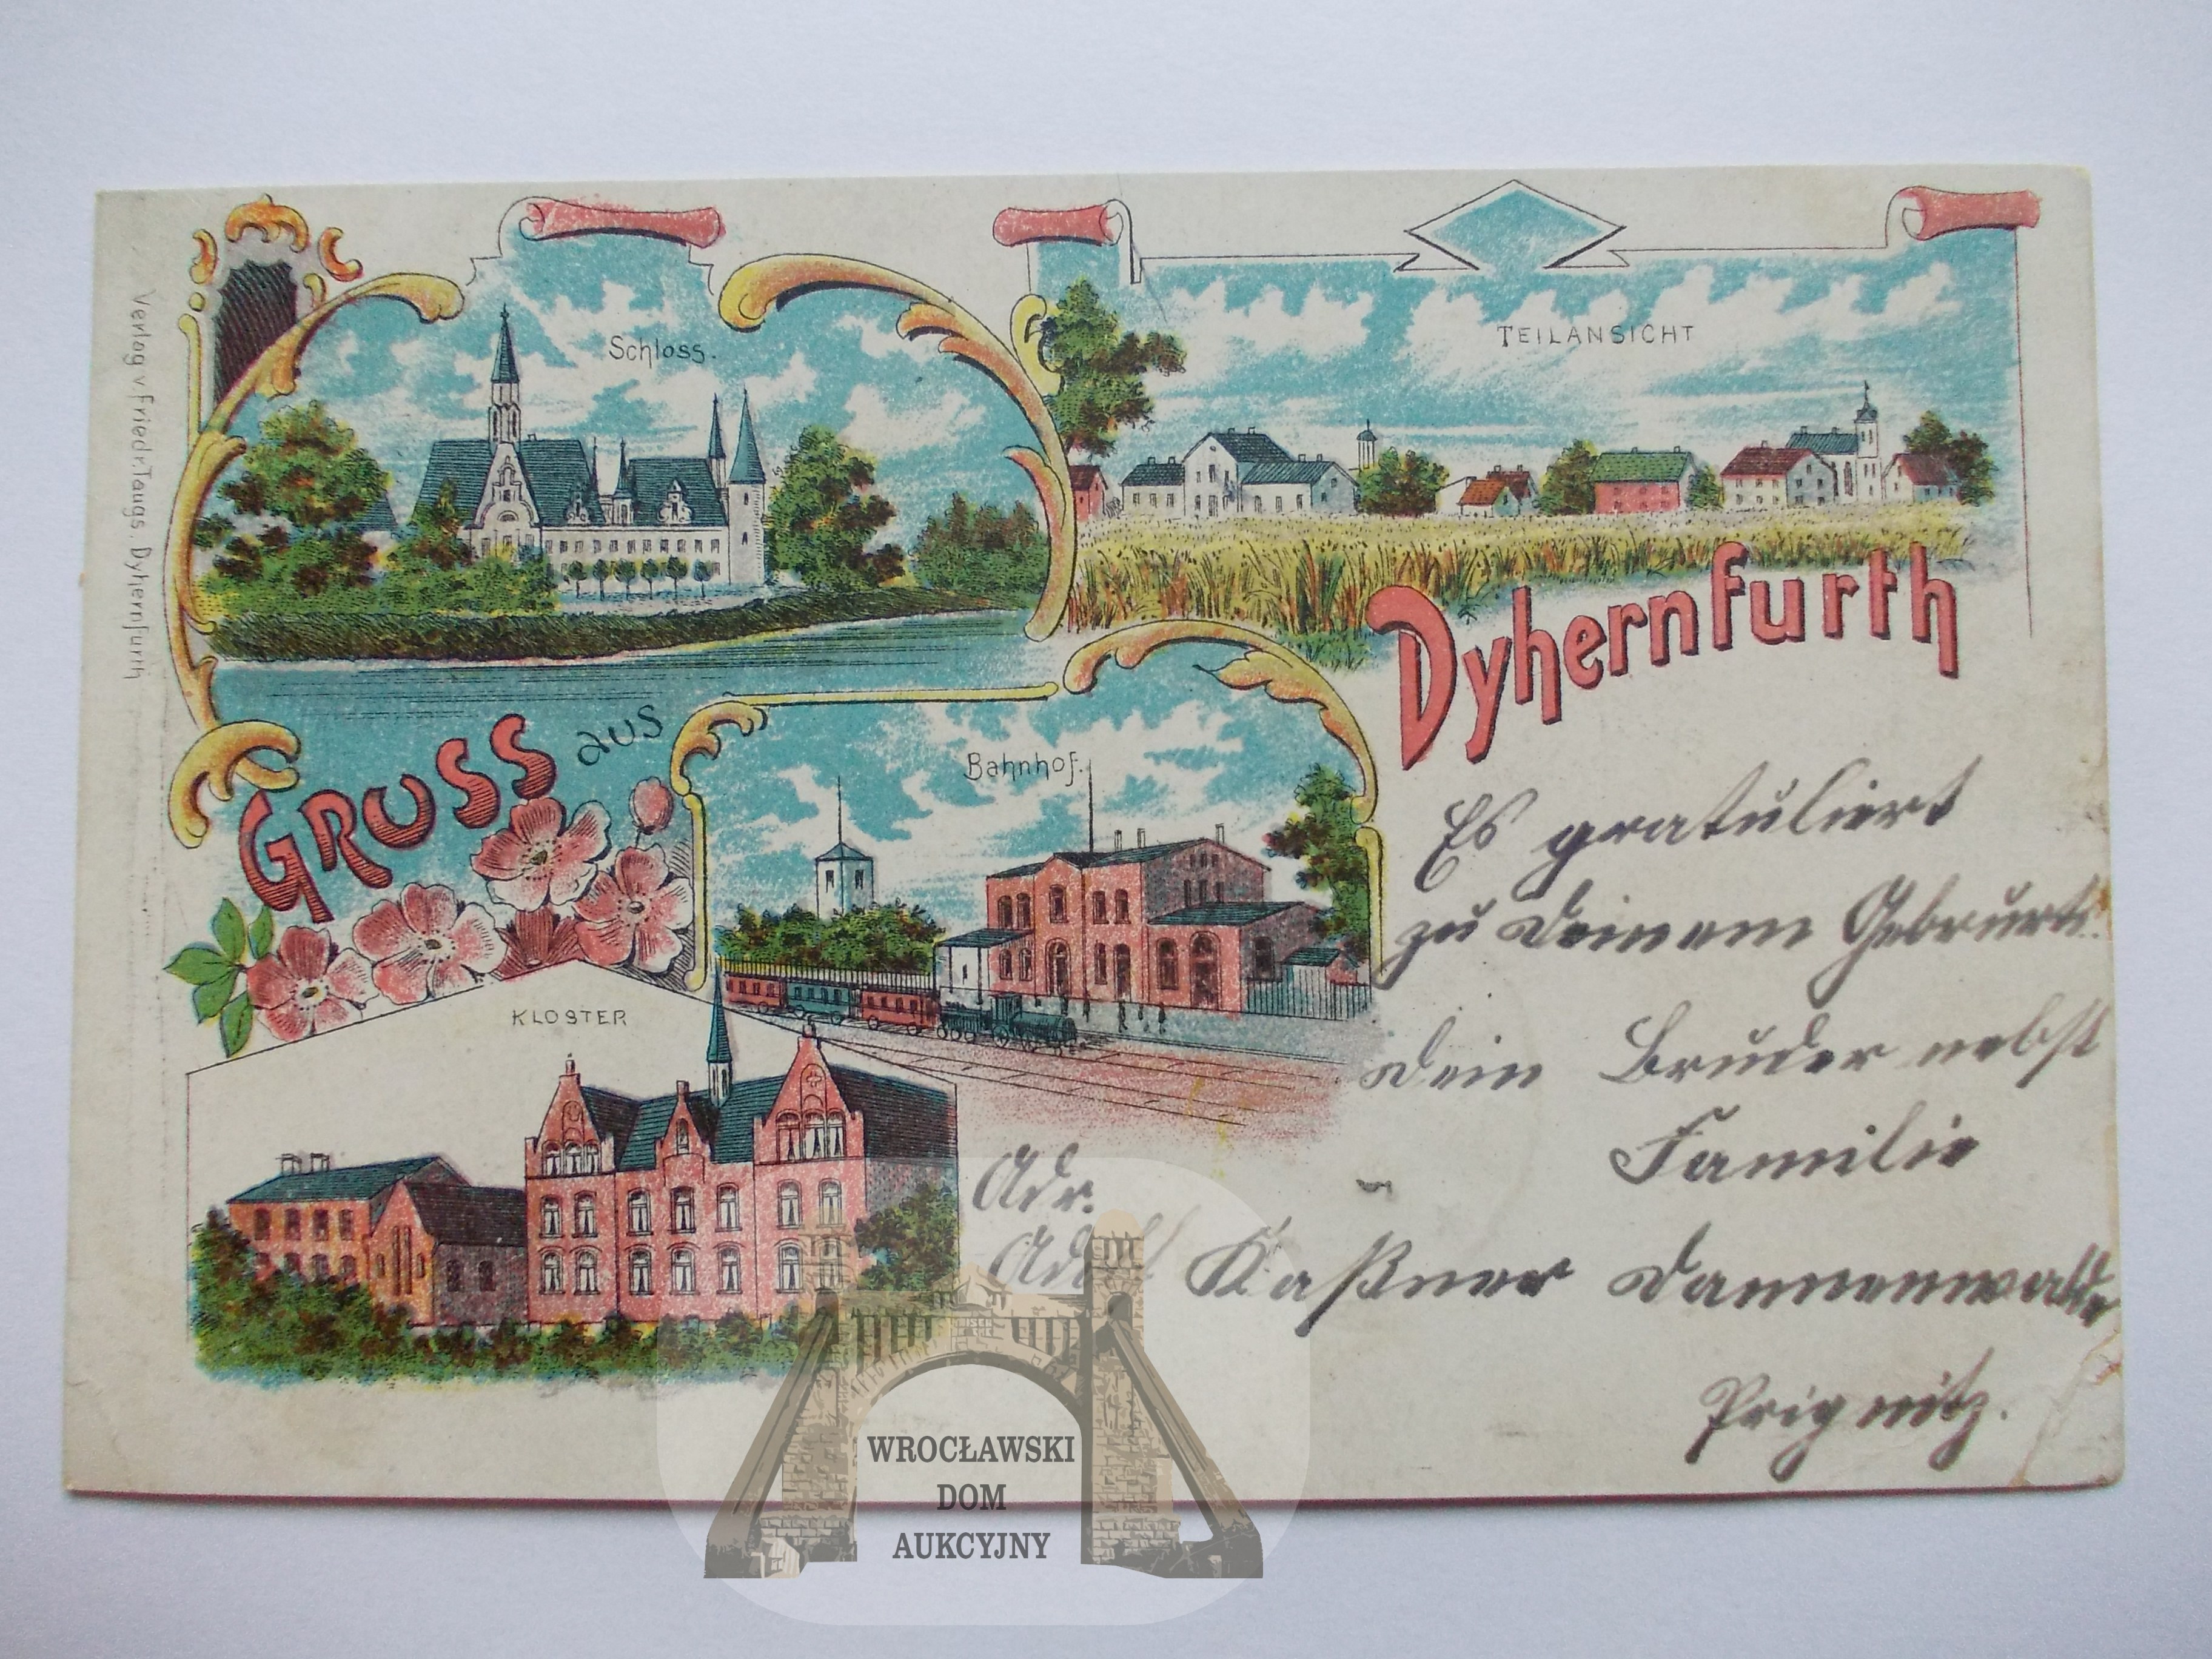 Verlag v Friedr. Taugs. Dyhernfurth
Schloss.
TEILANSICHT
GRUSS aus
Dyhernfurth
Bahnhof.
KLOSTER
Es gratuliert
zu Deinem Gebrurts.
Dein Bruder nebst
Familie
Adr.
Kaßner Dannenwalde
Prignitz.
WROCŁAWSKI
DOM
AUKCYJNY